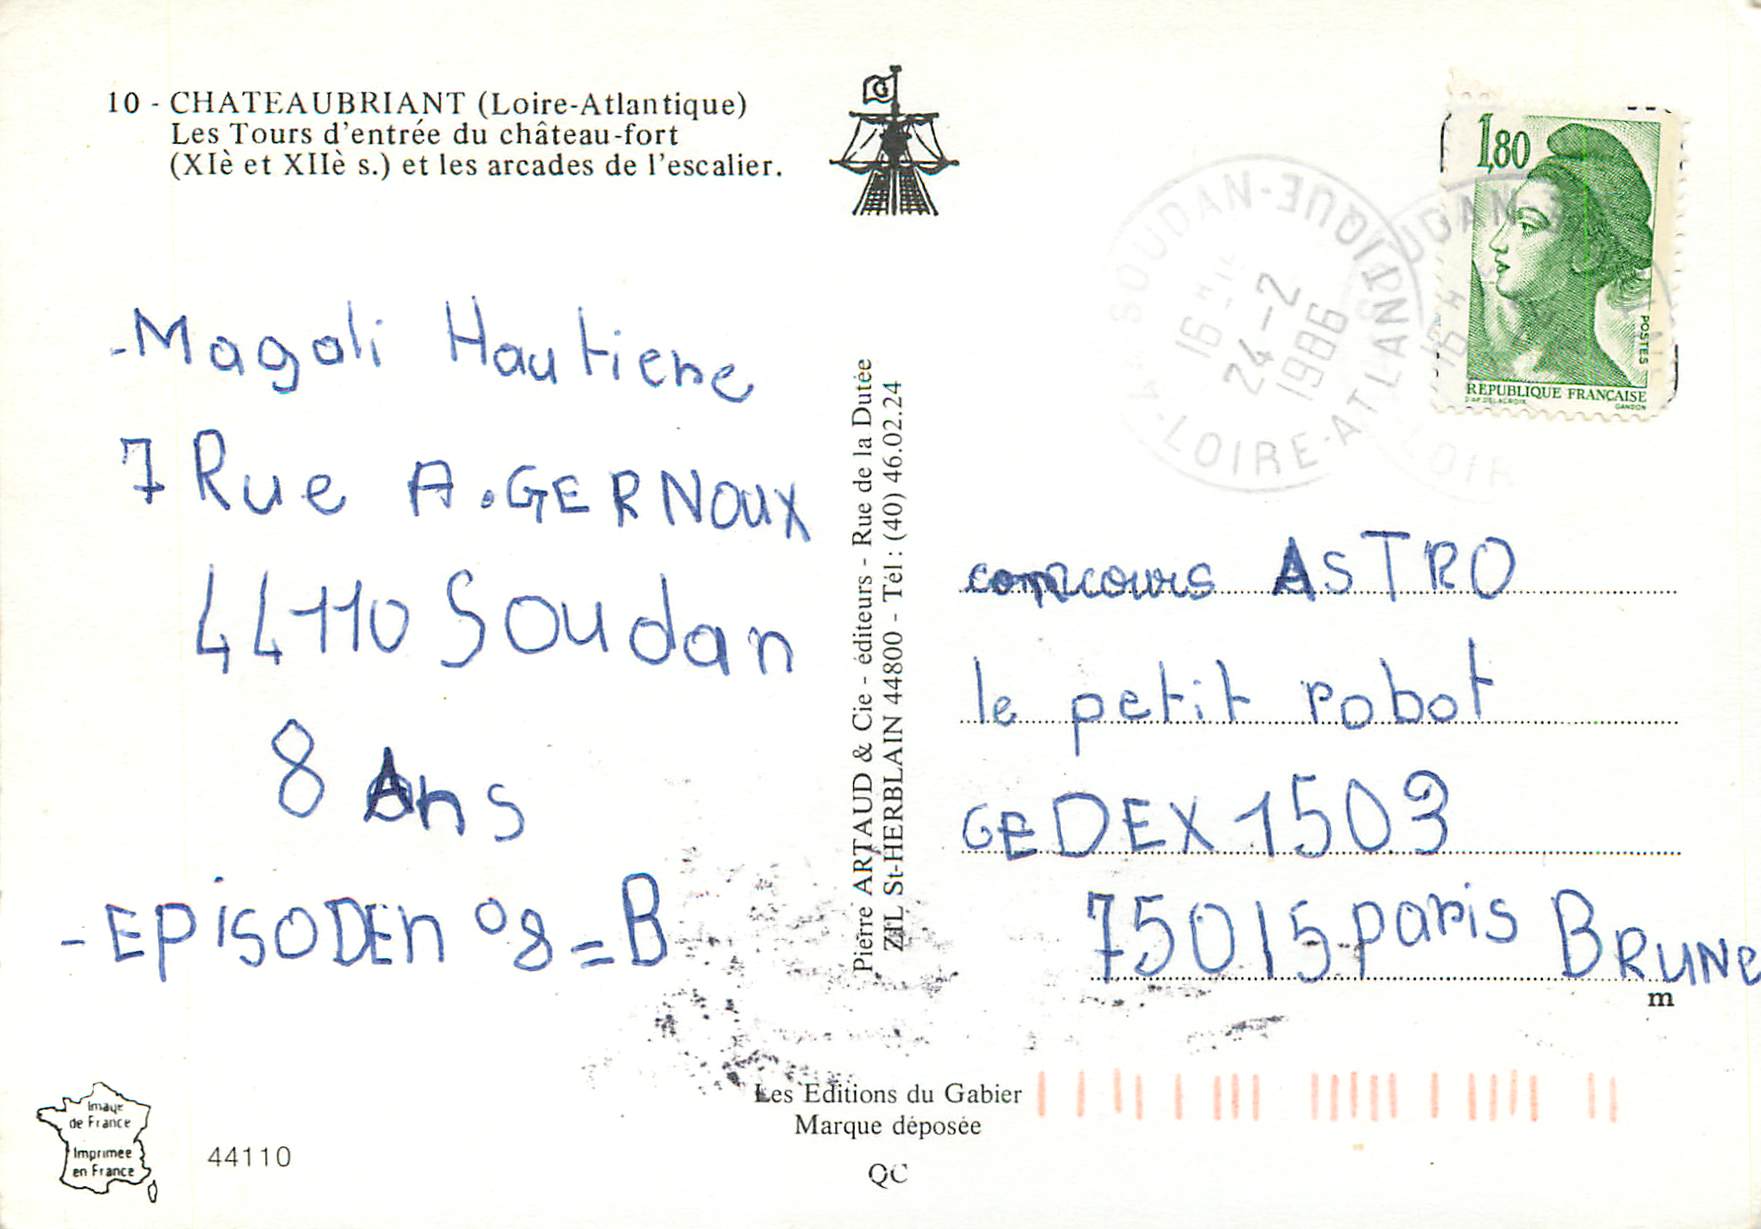 10 - CHATEAUBRIANT (Loire-Atlantique)
Les Tours d'entrée du château-fort
(XIè et XIIè s.) et les arcades de l'escalier.
G
- Magali Hautiere
7 Rue A. GERNOUX
44110 Soudan
8 Ans
- EPiSODEn °8 = B
Pierre ARTAUD & Cie - éditeurs - Rue de la Dutée
ZIL St-HERBLAIN 44800 - Tél : (40) 46.02.24
1,80
POSTES
REPUBLIQUE FRANÇAISE
D'AP. DELACROIX
GANDON
SOUDAN
LOIRE-ATLANTIQUE
16 H
24-2
1986
concours ASTRO
le petit robot
GEDEX 1503
75015 paris BRUNe
m
Image
de France
Imprimée
en France
44110
Les Editions du Gabier
Marque déposée
QC